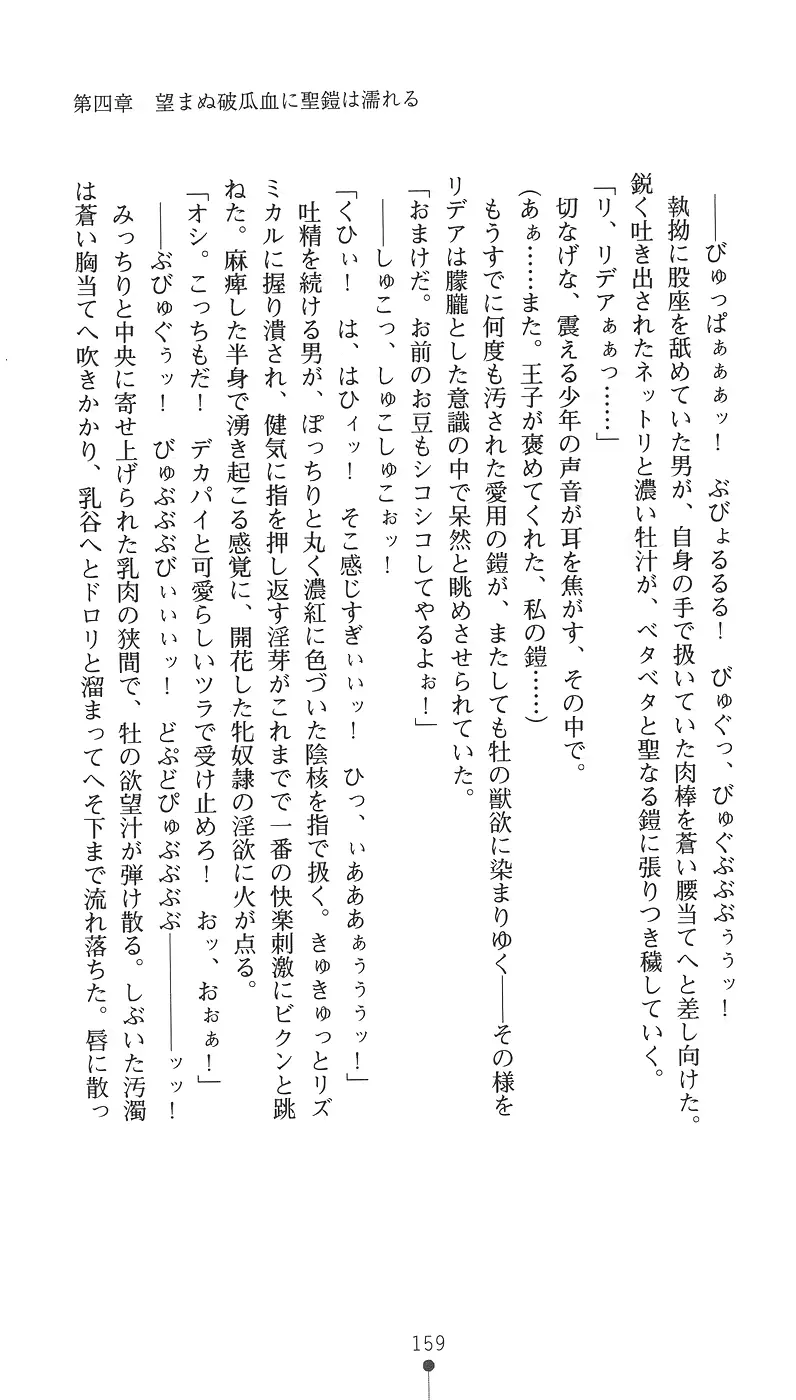 第四章　望まぬ破瓜血に聖鎧は濡れる
――びゅっぱぁぁぁッ！　ぶびょるるる！　びゅぐっ、びゅぐぶぶぶぅぅッ！
執拗に股座を舐めていた男が、自身の手で扱いていた肉棒を蒼い腰当てへと差し向けた。
鋭く吐き出されたネットリと濃い牡汁が、ベタベタと聖なる鎧に張りつき穢していく。
「リ、リデアぁぁっ……」
切なげな、震える少年の声音が耳を焦がす、その中で。
(あぁ……また。王子が褒めてくれた、私の鎧……)
もうすでに何度も汚された愛用の鎧が、またしても牡の獣欲に染まりゆく――その様を
リデアは朦朧とした意識の中で呆然と眺めさせられていた。
「おまけだ。お前のお豆もシコシコしてやるよぉ！」
――しゅこっ、しゅこしゅこぉッ！
「くひぃ！　は、はひィッ！　そこ感じすぎぃぃッ！　ひっ、ぃあああぁぅぅぅッ！」
吐精を続ける男が、ぽっちりと丸く濃紅に色づいた陰核を指で扱く。きゅきゅっとリズ
ミカルに握り潰され、健気に指を押し返す淫芽がこれまでで一番の快楽刺激にビクンと跳
ねた。麻痺した半身で湧き起こる感覚に、開花した牝奴隷の淫欲に火が点る。
「オシ。こっちもだ！　デカパイと可愛らしいツラで受け止めろ！　おッ、おぉぁ！」
――ぶびゅぐぅッ！　びゅぶぶぶびぃぃぃッ！　どぷどぴゅぶぶぶぶ――――ッッ！
みっちりと中央に寄せ上げられた乳肉の狭間で、牡の欲望汁が弾け散る。しぶいた汚濁
は蒼い胸当てへ吹きかかり、乳谷へとドロリと溜まってへそ下まで流れ落ちた。唇に散っ
159